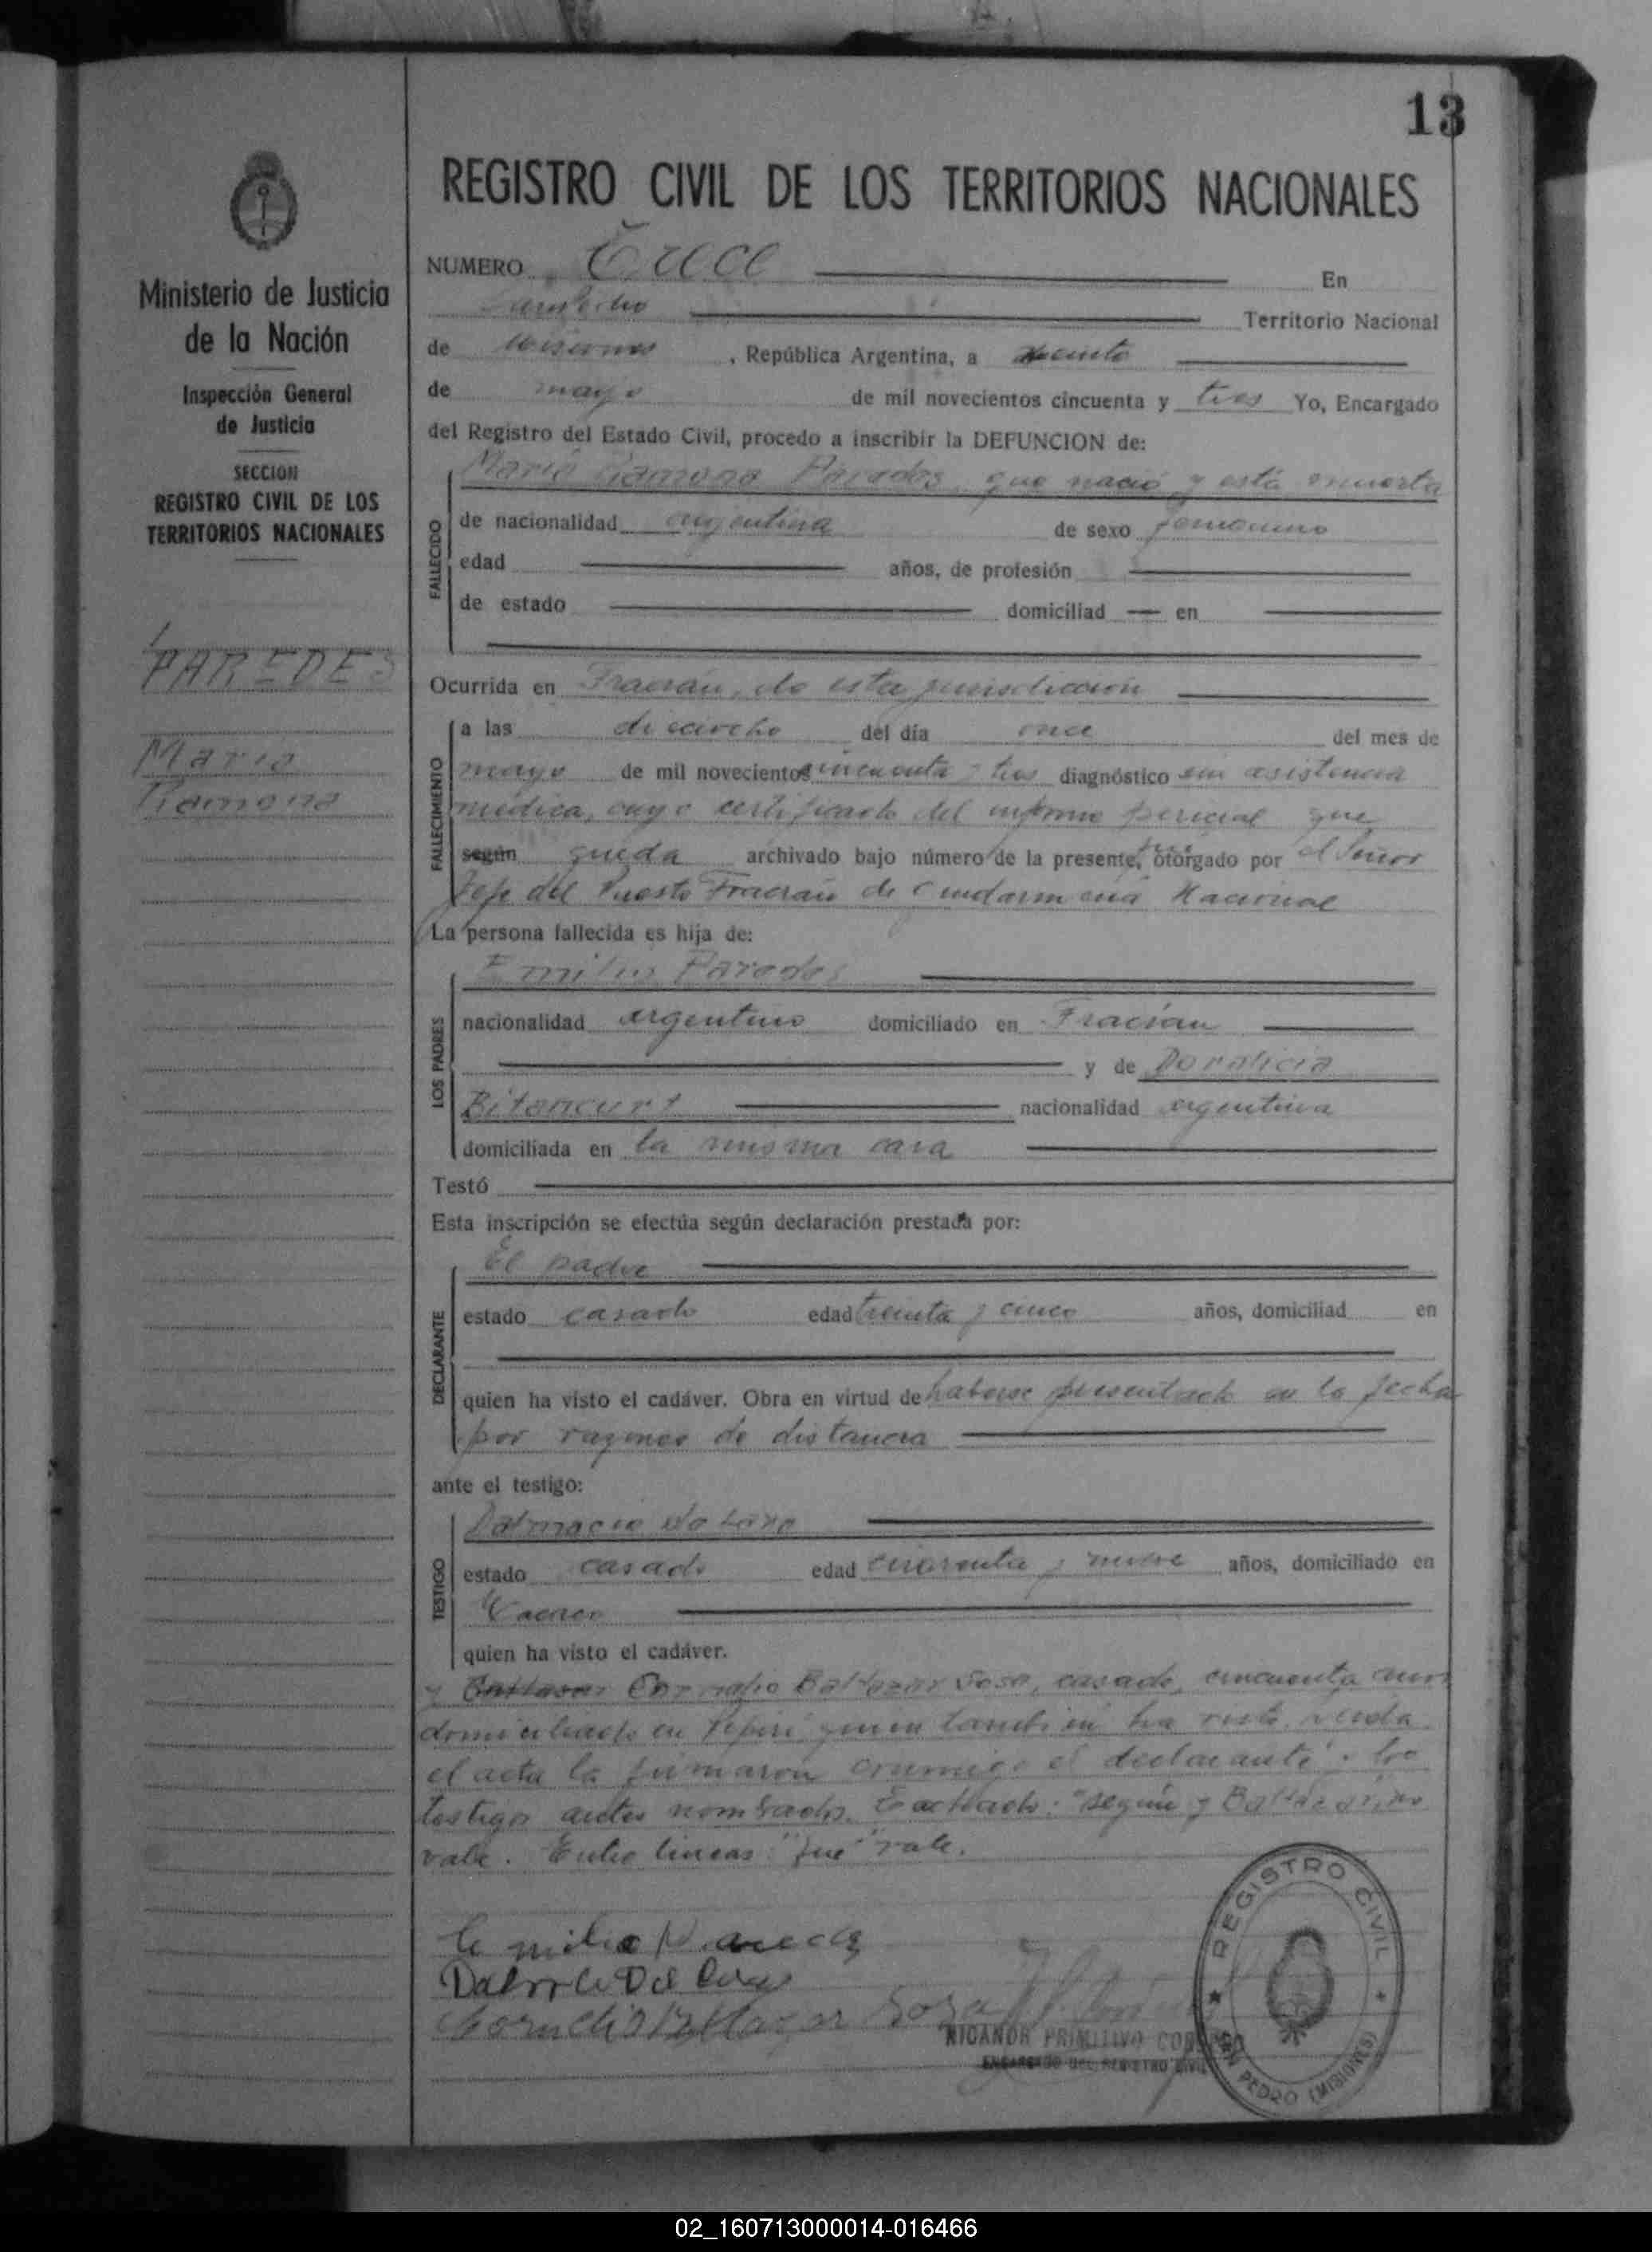 13
REGISTRO CIVIL DE LOS TERRITORIOS NACIONALES
Ministerio de Justicia
de la Nación
Inspección General
de Justicia
SECCION
REGISTRO CIVIL DE LOS
TERRITORIOS NACIONALES
PAREDES
Maria
Ramona
NUMERO Trece En
San Pedro Territorio Nacional
de Misiones, República Argentina, a treinta
de mayo de mil novecientos cincuenta y tres Yo, Encargado
del Registro del Estado Civil, procedo a inscribir la DEFUNCION de:
María Ramona Paredes que nació y está muerta
FALLECIDO
de nacionalidad argentina de sexo femenino
edad años, de profesión
de estado domiciliad en
Ocurrida en Fracrán, de esta jurisdicción
FALLECIMIENTO
a las dieciocho del día once del mes de
mayo de mil novecientos cincuenta y tres diagnóstico sin asistencia
médica, cuyo certificado del informe pericial que
según queda archivado bajo número de la presente, fué otorgado por el Señor
Jefe del Puesto Fracrán de Gendarmería Nacional
La persona fallecida es hija de:
LOS PADRES
Emilio Paredes
nacionalidad argentino domiciliado en Fracrán
y de Doralicia
Bitancurt nacionalidad argentina
domiciliada en la misma casa
Testó
Esta inscripción se efectúa según declaración prestada por:
DECLARANTE
El padre
estado casado edad treinta y cinco años, domiciliad en
quien ha visto el cadáver. Obra en virtud de haberse presentado en la fecha
por razones de distancia
ante el testigo:
TESTIGO
Dalmacio
estado casado edad cuarenta y nueve años, domiciliado en
quien ha visto el cadáver.
y Baltasar Cornelio Baltazar Sosa, casado, cincuenta
domiciliado en Pepirí quien también ha visto. Leída
el acta la firmaron conmigo el declarante y los
testigos antes nombrados. Tachado: "según y Baltazar", no
vale. Entre lineas: "fué" vale.
Emilio Paredes
Cornelio Baltazar Sosa
NICANOR PRIMITIVO
ENCARGADO DEL REGISTRO CIVIL
REGISTRO CIVIL
SAN PEDRO (MISIONES)
02_160713000014-016466